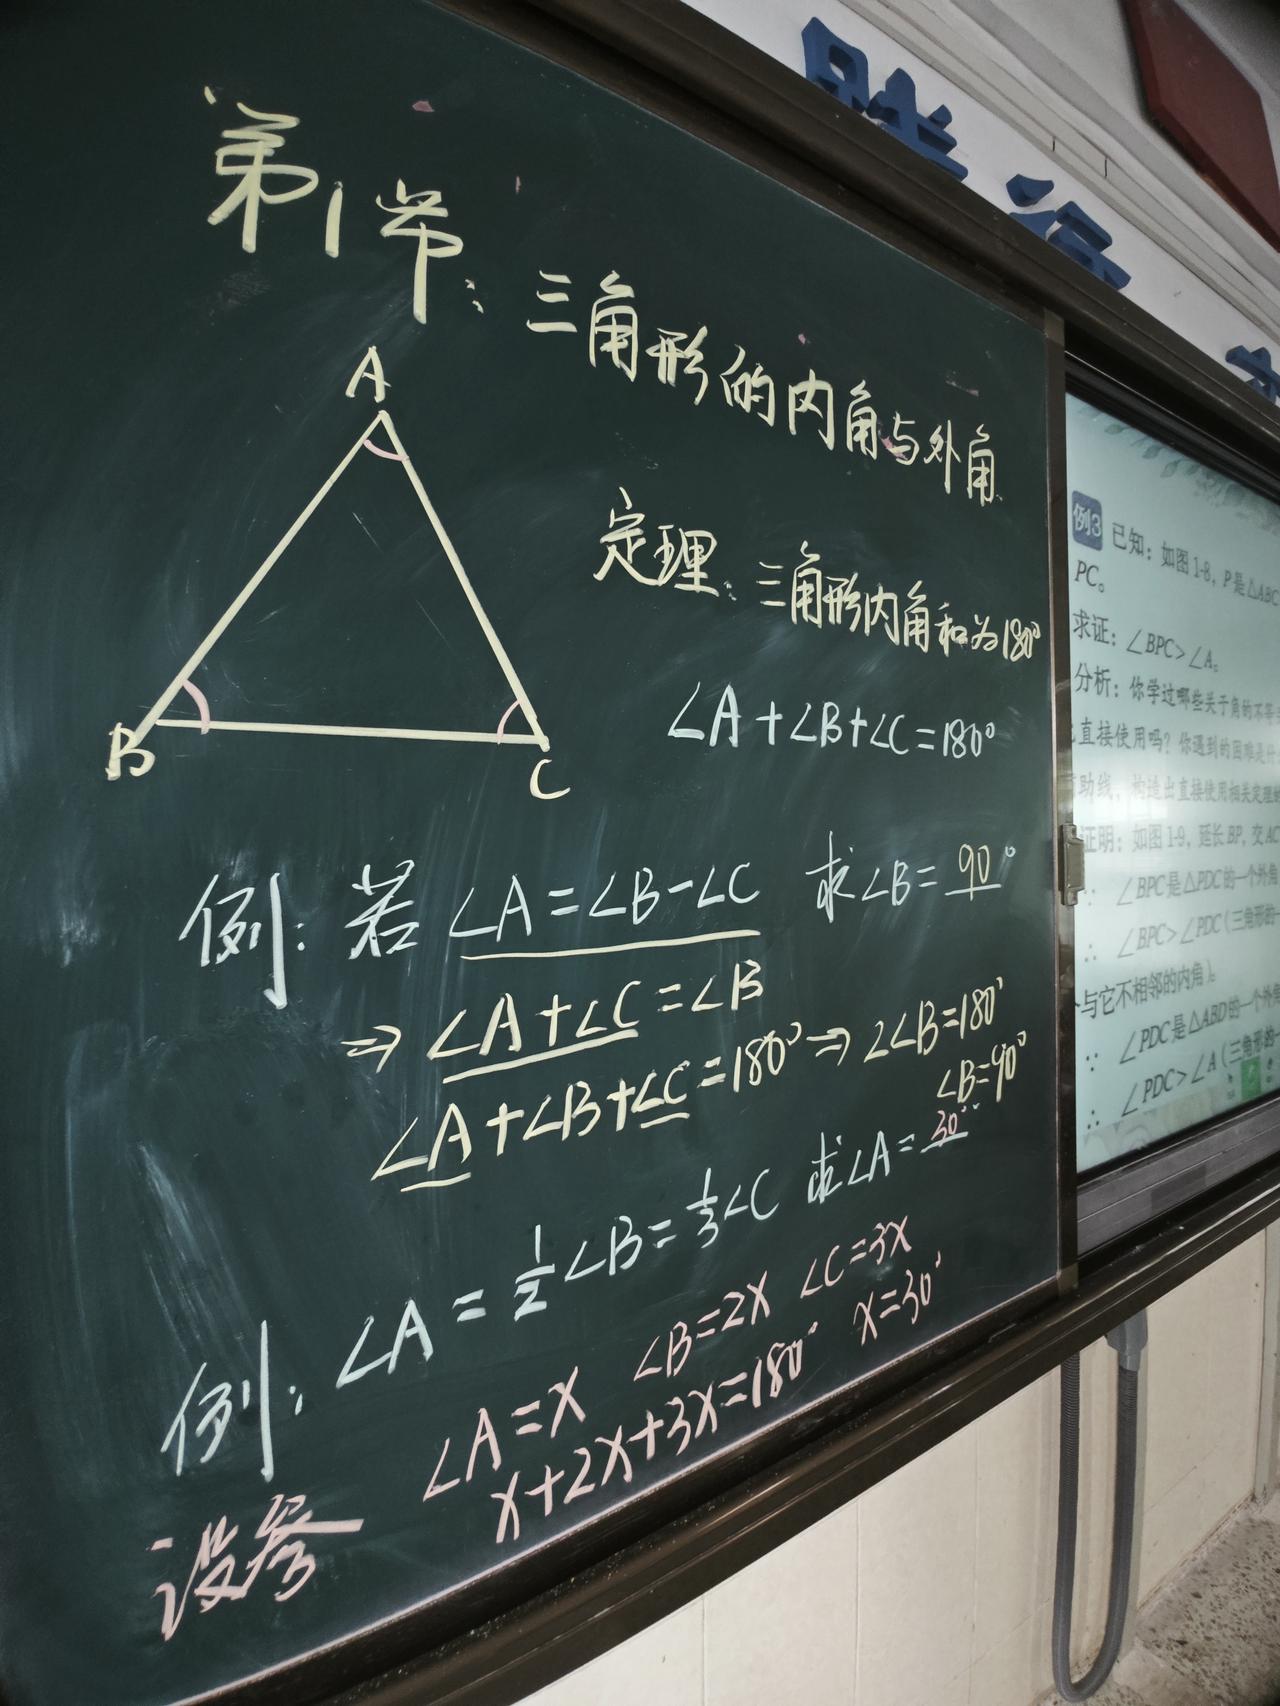 第1节：三角形的内角与外角
A
B
C
定理：三角形内角和为180°
∠A+∠B+∠C=180°
例：若 ∠A=∠B-∠C 求∠B=90°
⇒ ∠A+∠C=∠B
∠A+∠B+∠C=180° ⇒ 2∠B=180°
∠B=90°
例：∠A=1/2∠B=1/3∠C 求∠A=30°
设参 ∠A=x ∠B=2x ∠C=3x
x+2x+3x=180° x=30°
例3 已知：如图1-8，P是△ABC
PC。
求证：∠BPC>∠A。
分析：你学过哪些关于角的不等
直接使用吗？你遇到的困难是什
助线，构造出直接使用相关定理
证明：如图1-9，延长BP，交AC
∵ ∠BPC是△PDC的一个外角
∴ ∠BPC>∠PDC（三角形的
与它不相邻的内角）。
∵ ∠PDC是△ABD的一个外角
∴ ∠PDC>∠A（三角形的一